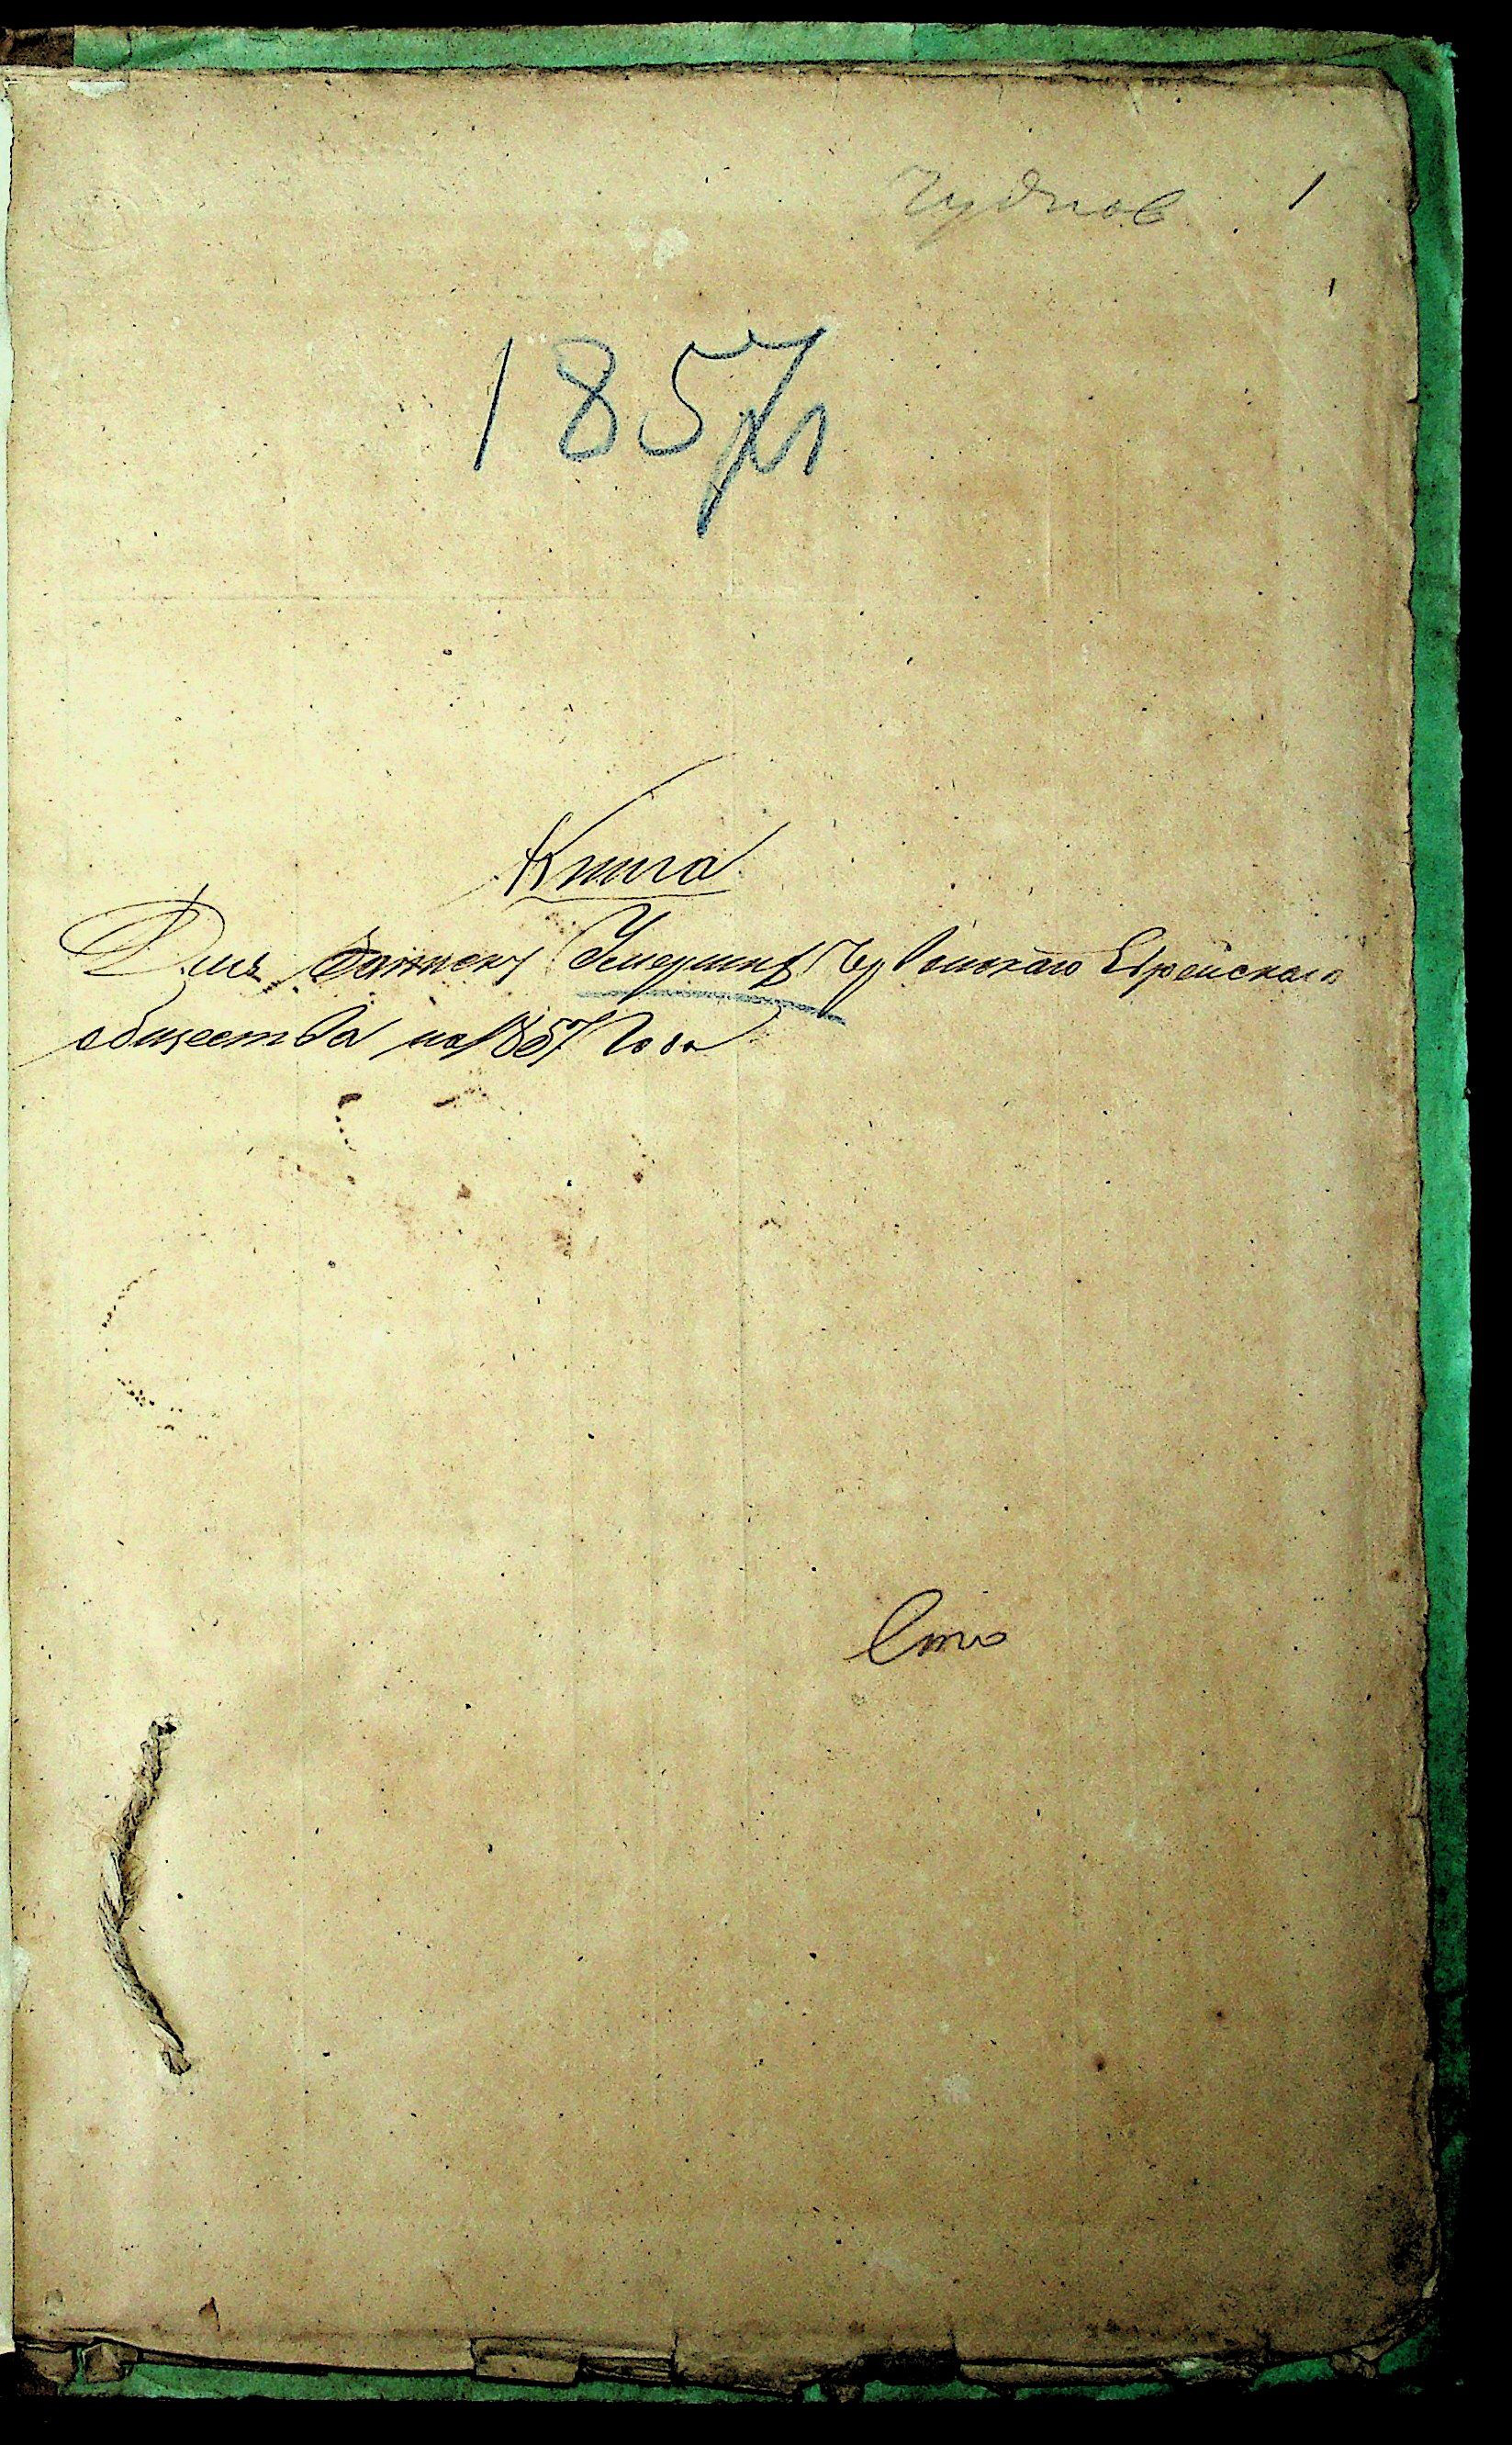 Чуднов 1
1857
Книга
Для Записки Умершихъ Чудновскаго Еврейскаго
общества на 1857 Года